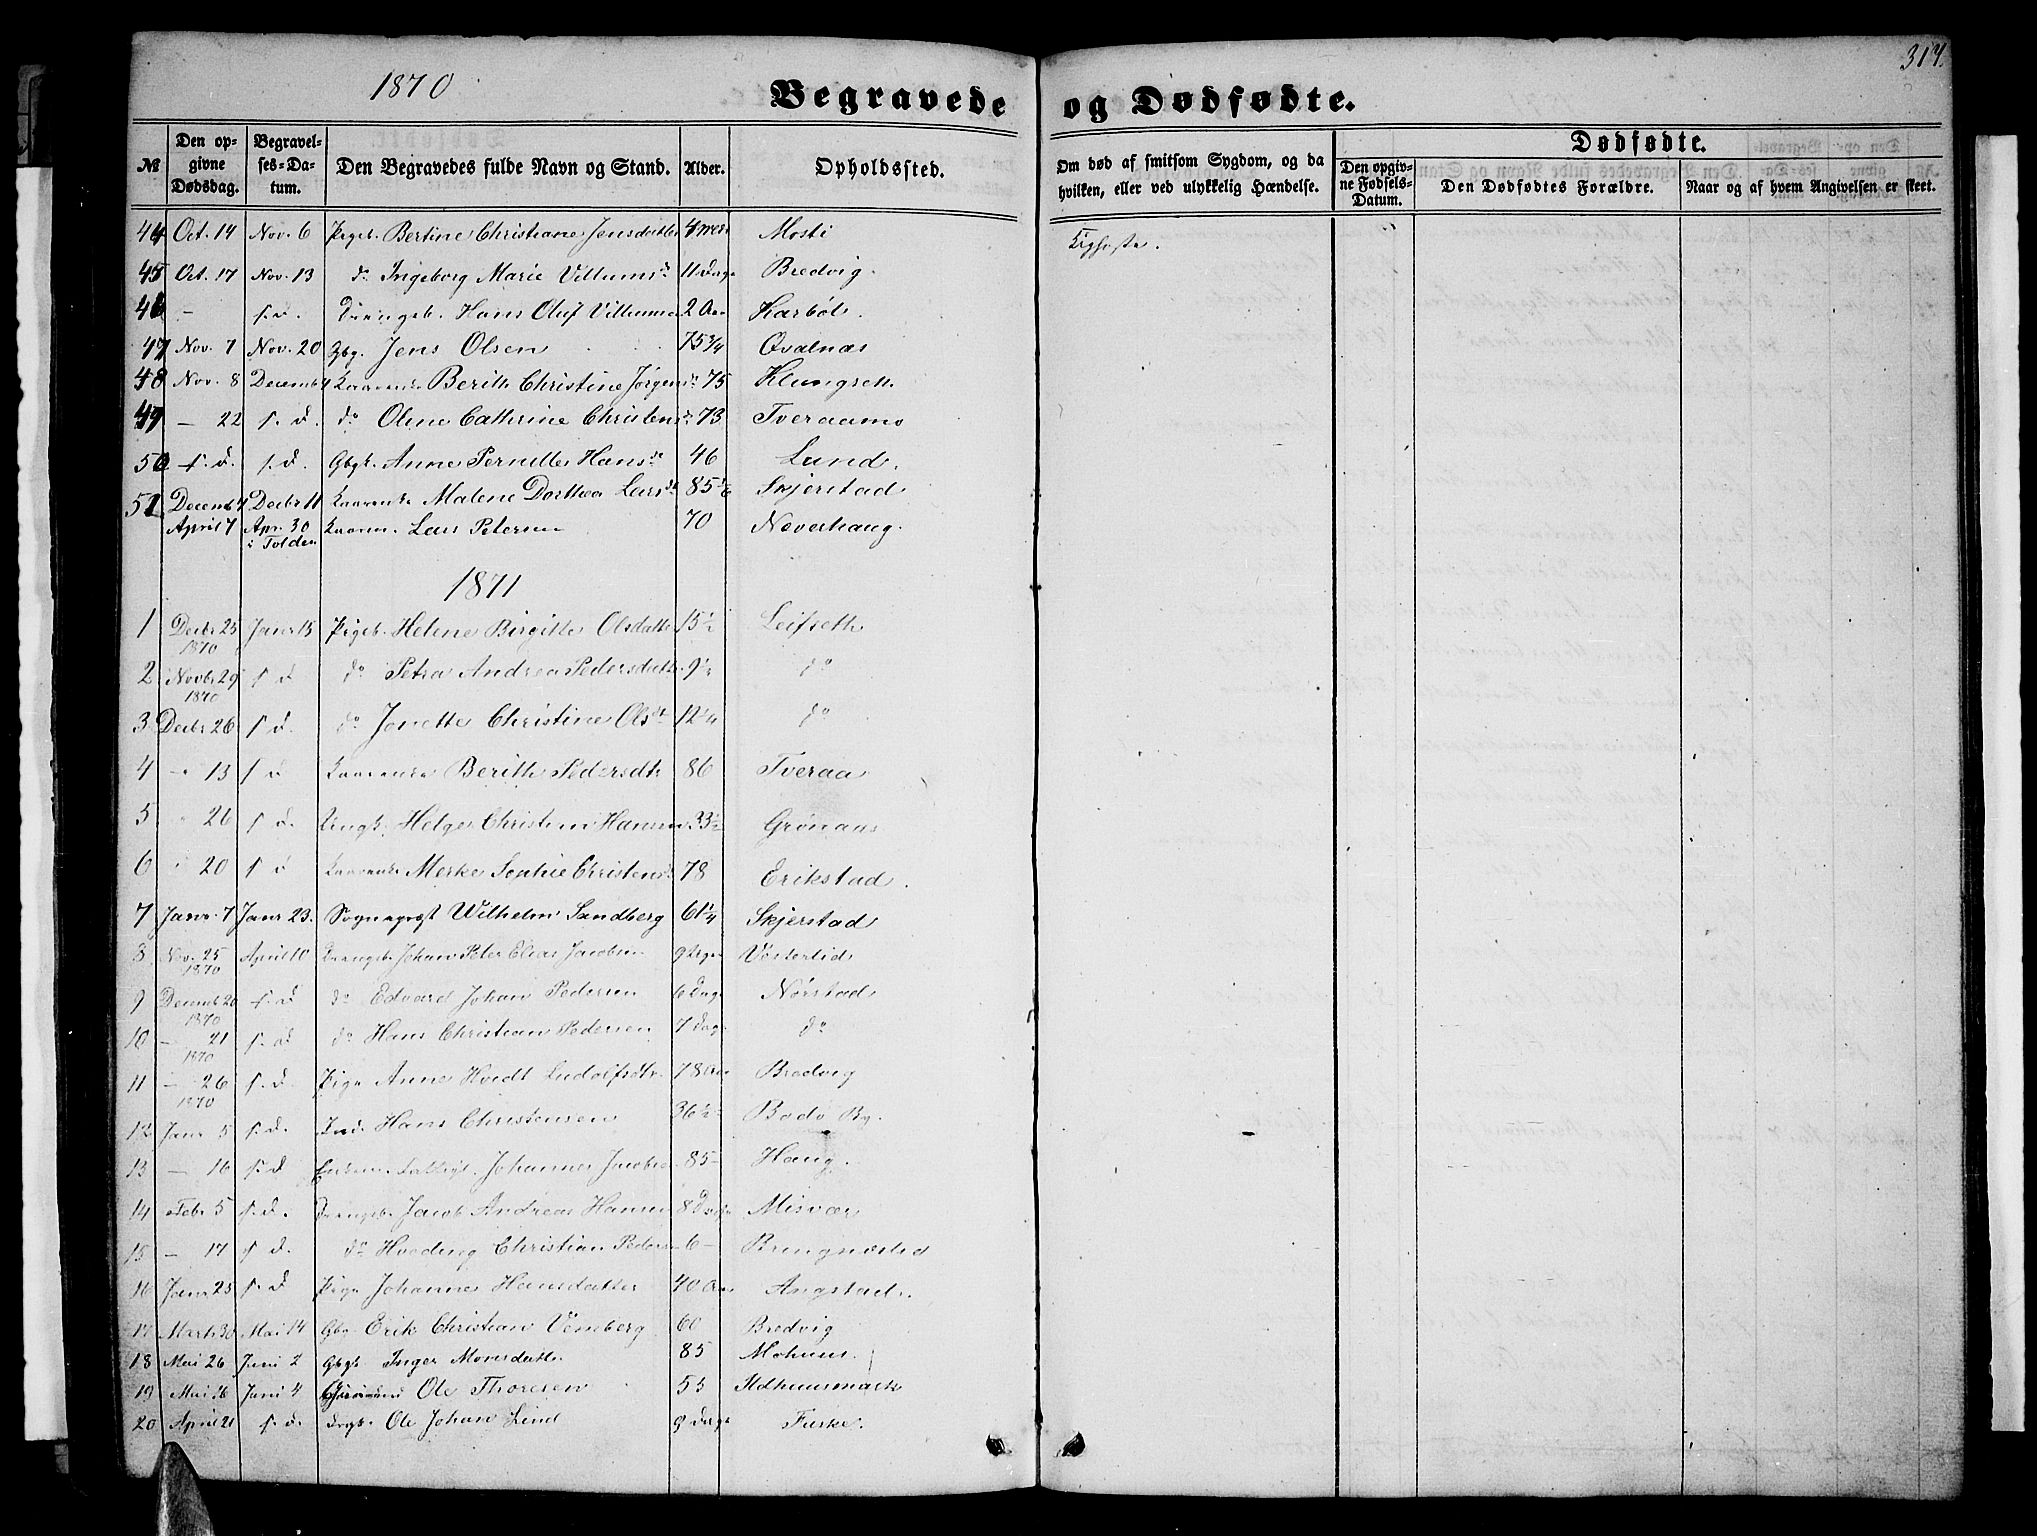 1870
Begravede og Dødfødte.
317.
№
Den opgivne Dødsdag.
Begravelses-Datum.
Den Begravedes fulde Navn og Stand.
Alder.
Opholdssted.
Om død af smitsom Sygdom, og da hvilken, eller ved ulykkelig Hændelse.
Dødfødte.
Den opgivne Fødsels-Datum.
Den Dødfødtes Forældre.
Naar og af hvem Angivelsen er skeet.
44 Oct. 14 Nov. 6 Pigeb. Bertine Christiane Jensdatter 4 Mosti Kighoste.
45 Oct. 17 Nov. 13 do Ingeborg Marie Villumsd. 11 Dage Bredvig.
46 - s. d. Drengeb. Hans Oluf Villumsen 2 Aar Karbøl.
47 Nov. 7 Nov. 20 Gbg. Jens Olsen 75 3/4 Qvalnæs
48 Nov. 8 Decemb 4 Berith Christine Jørgensd. 75 Klungseth
49 - 22 s. d. do Oline Cathrine Christensd. 73 Tveraamo
50 s. d. s. d. Gbgk. Anne Pernille Hansd. 46 Lund.
51 Decemb 4 Decbr 11 Malene Dorthea Larsd. 85 1/2 Skjerstad
April 7 Apr. 30 i Folden Kaarm. Lars Petersen 70 Neverhaug.
1871
1 Decbr 25 1870 Janr 15 Pigeb. Helene Birgitte Olsdatter 15 1/2 Leifseth
2 Novbr 29 1870 s d do Petra Andrea Pedersdatter 9 1/2 do
3 Decbr 26 s d. do Jonette Christine Olsdt 12 1/4 do
4 " 13 s d Berith Pedersdtr 86 Tveraa
5 " 26 s d. Ungk. Helger Christian Hansen 33 1/2 Grønaas
6 " 20 s d Merke Sophie Christensd. 78 Erikstad.
7 Janr. 7 Janr 23. Sognepræst Wilhelm Sandberg 61 1/4 Skjerstad
8 Nov. 25 1870 April 10 Drengeb. Johan Peter Elias Jacobsen 9 Dage Vesterlid
9 Decemb 20 1870 s. d do Edvard Johan Pedersen 6 Dage Nørstad
10 - 21 1870 s. d do Hans Christian Pedersen 7 Dage do
11 - 26 1870 s. d. Pige Anne Hvidt Ludolfsdtr 78 Aar Bredvig
12 Janr 5 s. d. Ind. Hans Christensen 36 1/2 Bodø By.
13 - 16 s. d Johannes Jacobsen 85 Haug.
14 Febr 5 s. d. Drengeb. Jacob Andreas Hansen 8 Dage Misvær
15 - 17 s d. do Hveding Christian Pedersen 6 - Bringnæslid
16 Janr 25 s. d Pige Johanne Hansdatter 40 Aar Angstad.
17 Marts 30 Mai 14 Gbg. Erik Christian Vemberg 60 Bredvig
18 Mai 26 Juni 2 Gbgk. Inger Monsdatter 85 Mohuus.
19 Mai 16 Juni 4 Ole Thoresen 55 Ildhuusmark
20 April 21 s. d. Drgb. Ole Johan Lind 9 Dage Fuske.